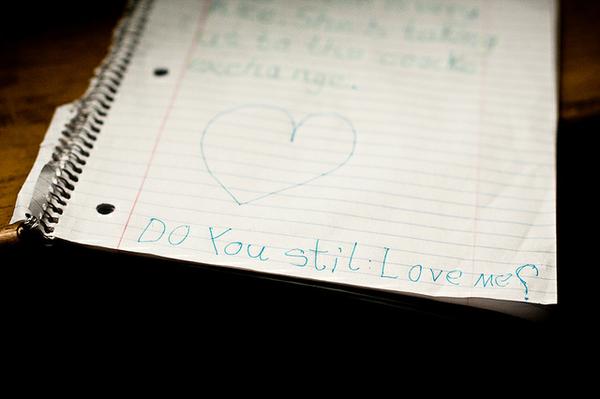 nice. She's taking
us to the cooks
exchange.
Do You stil: Love me?